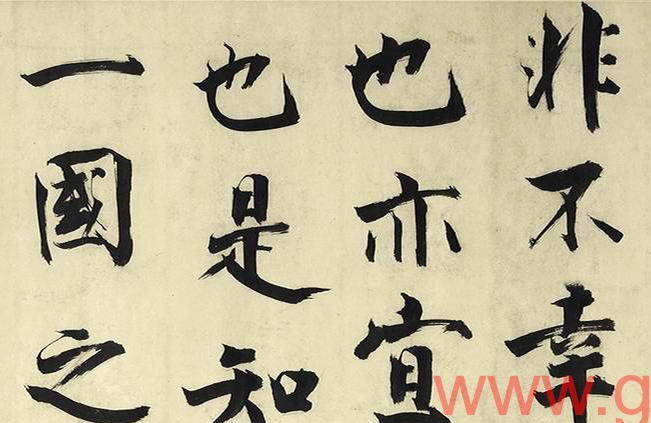 非不幸
也亦宜
也是知
一國之
www.g